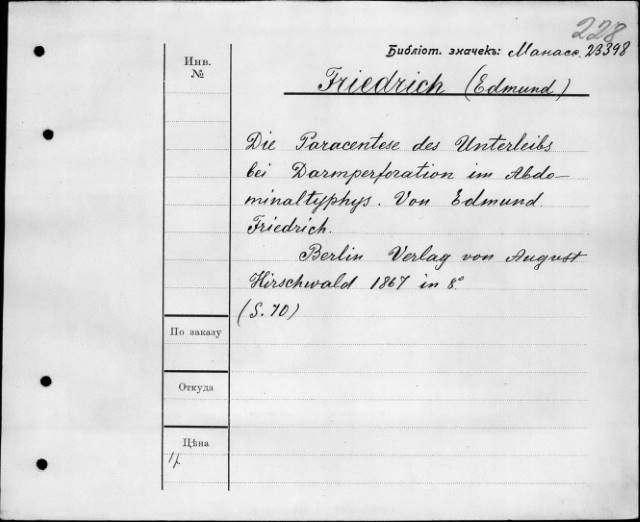 228
Библіот. значекъ: Манасе. 23398
Инв.
№
Friedrich (Edmund)
Die Paracentese des Unterleibs
bei Darmperforation im Abdo-
minaltyphys. Von Edmund
Friedrich.
Berlin Verlag von August
Hirschwald 1867 in 8°
(S. 70)
По заказу
Откуда
Цѣна